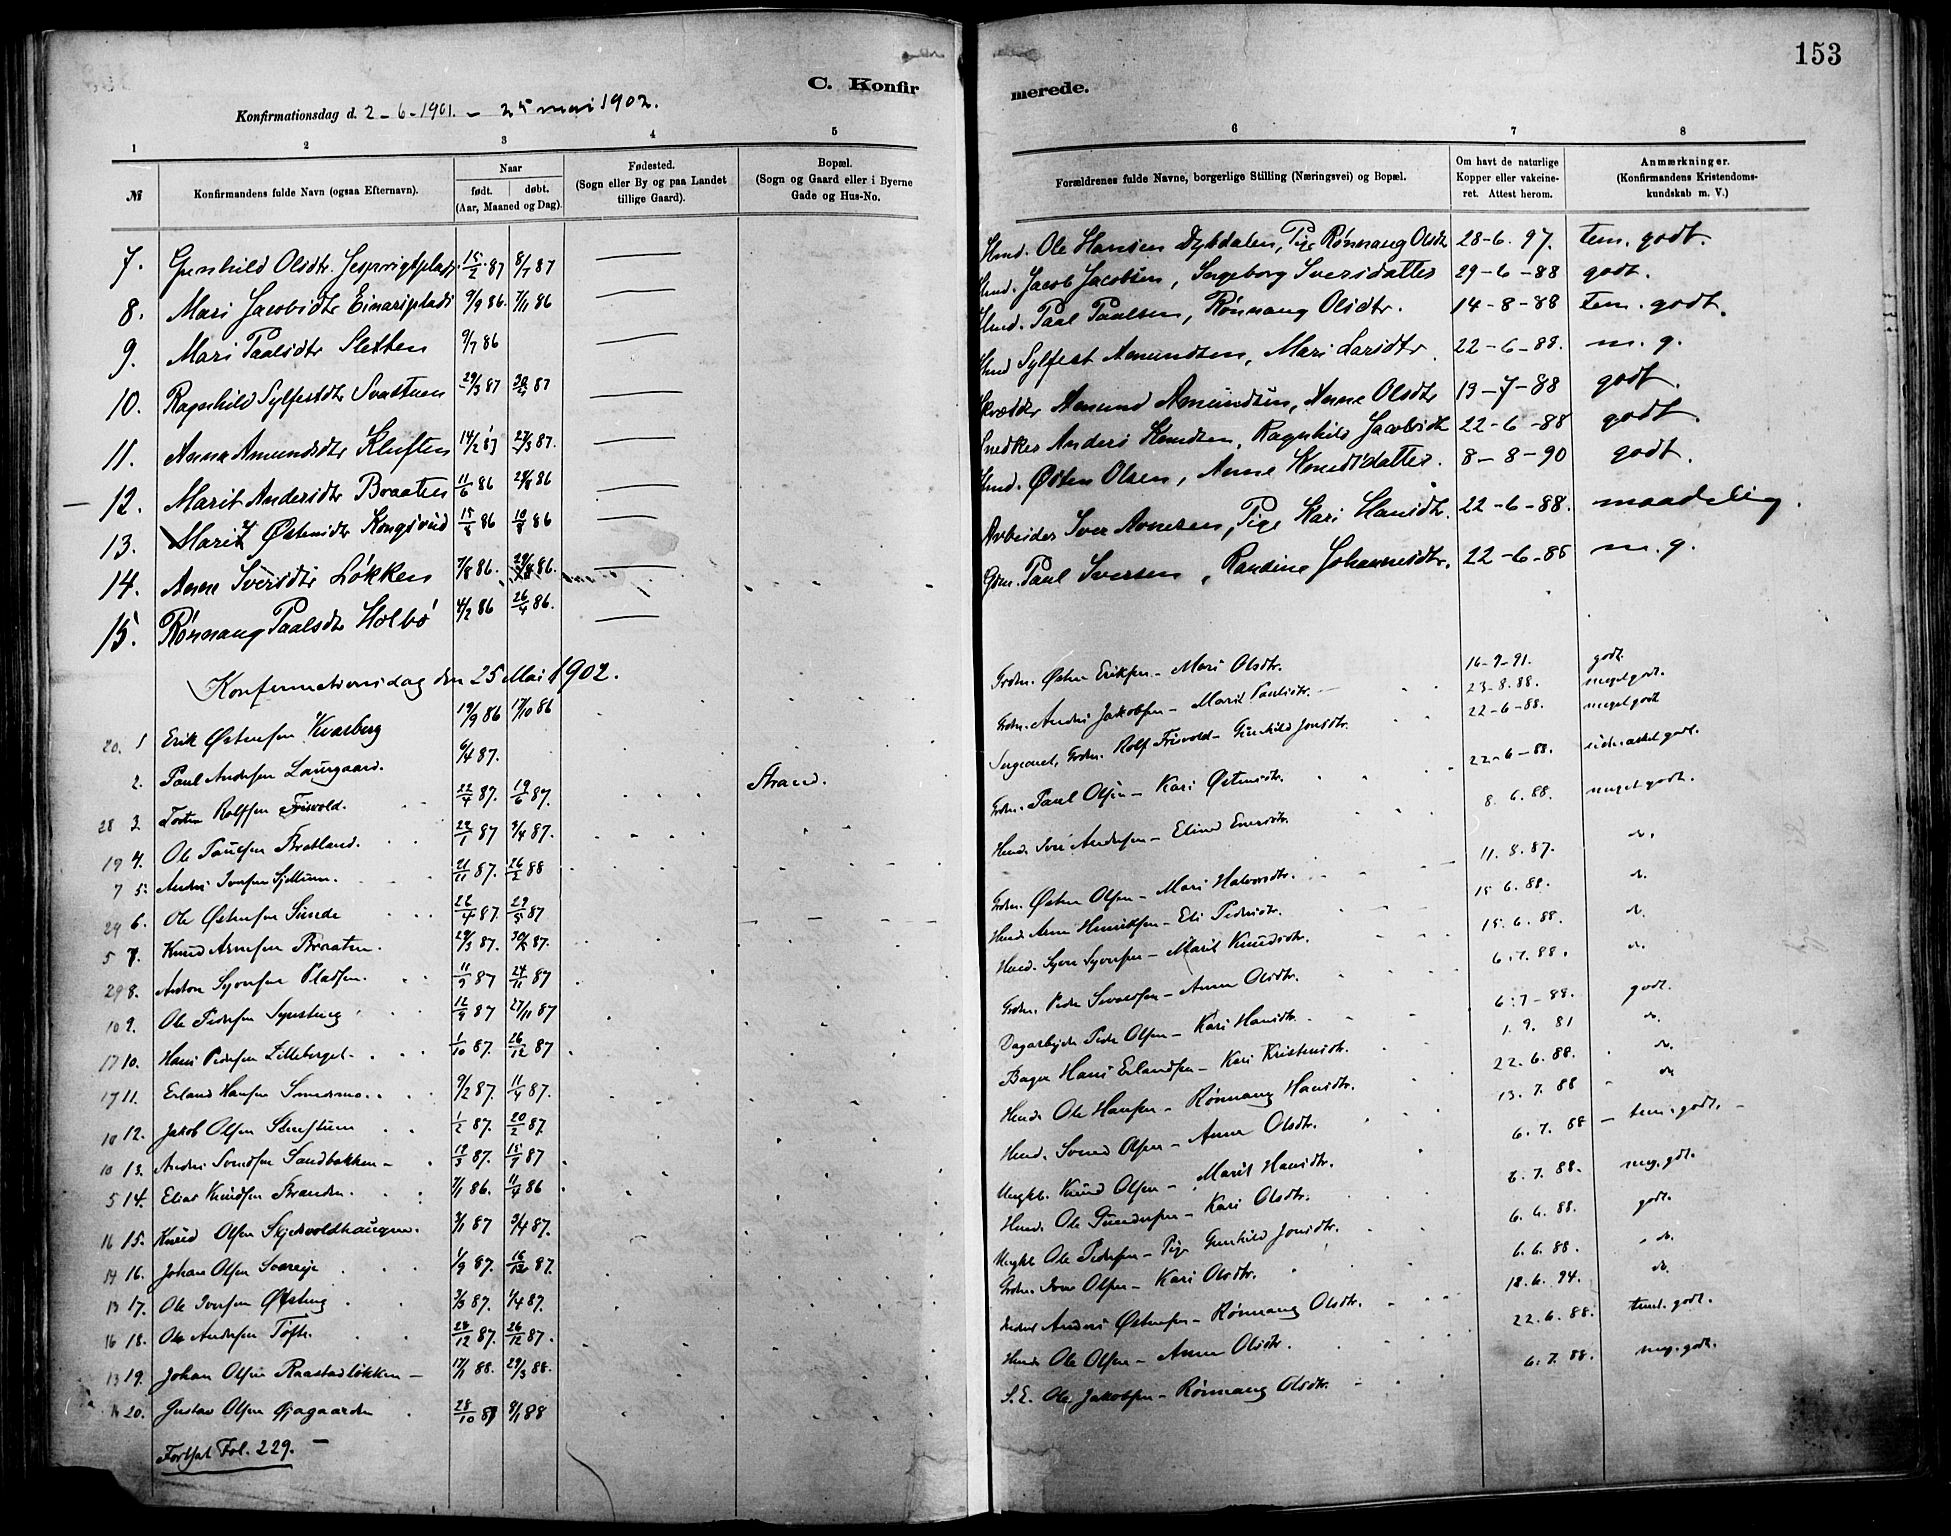 153
C. Konfirmerede.
Konfirmationsdag d. 2-6-1901. - 25 mai 1902.
1 2 3 4 5 6 7 8
№
Konfirmandens fulde Navn (ogsaa Efternavn).
Naar født. døbt. (Aar, Maaned og Dag).
Fødested. (Sogn eller By og paa Landet tillige Gaard).
Bopæl. (Sogn og Gaard eller i Byerne Gade og Hus-No.
Forældrenes fulde Navne, borgerlige Stilling (Næringsvei) og Bopæl.
Om havt de naturlige Kopper eller vakcineret. Attest herom.
Anmærkninger. (Konfirmandens Kristendomskundskab m. V.)
7. Gunhild Olsdtr. 15/2 87 8/7 87 Hmd. Ole Hansen Dybdalen, Pige Rønnaug Olsdtr 28-6. 97. tem. godt.
8. Mari Jacobsdtr Einarsplads 9/9 86. 7/11 86 Hmd. Jacob Jacobsen, Ingeborg Iversdatter 29-6-88 godt.
9. Mari Paalsdtr Sletten 9/7 86 Hmd. Paal Paalsen, Rønnaug Olsdtr. 14-8-88 tem. godt.
10. Ragnhild Sylfestdtr Svattuen 29/3 87 87 Hmd Sylfest Amundsen, Mari Larsdtr 22-6-88. m. g.
11. Anna Amundsdtr Kluften 14/2 87 27/3 87. Skrædder Amund Amundsen, Anne Olsdtr 19-7-88 godt.
12. Marit Andersdtr Braaten 11/6 86 86 Snedker Anders Knudsen, Ragnhild Jacobsdtr 22-6-88 godt.
13. Marit Østensdtr Kongsvud 15/5 86 10/8 86 Hmd. Østen Olsen, Anne Knudsdatter. 8-8-90 godt.
14. Anne Iversdtr Løkken 7/8 86. 29/8 86. Arbeider Iver Arnesen, Pige Kari Hansdtr. 22-6-88. maadelig.
15. Rønnaug Paalsdtr Holbø 4/2 86 26/4 86. Gdm. Paul Iversen, Randine Johannesdtr. 22-6-88 m. g.
Konfirmationsdag den 25 Mai 1902.
20. 1 Erik Østensen Kvarberg 19/9 86 17/10 86 Grdm. Østen Eriksen - Mari Olsdtr. 16-9-91. godt.
2. Paul Andersen Laurgaard. 6/4 87. Grdm. Anders Jakobsen - Marit Paulsdtr. 23-8.88. meget godt.
28 3. Torsten Rolfsen Frisvold. 22/4 87. 19/6 87. Strand. Sergeant, Grdm. Rolf Frisvold - Gunhild Jonsdtr. 22-6-88. meget godt
19 4. Ole Paulsen Bratland. 87 9/4 87. Grdm. Paul Olsen - Kari Østensdtr. 22-6-88.
7 5. Anders Iversen 21/11 87. 26/2 88 Hmd. Iver Andersen - Eline 8. 6. 88. meget godt.
24 6. Ole Østensen Sunde 26/4 87. 29/5 87 Grdm. Østen Olsen - Mari Halvorsdtr. 11. 8. 87. do.
5 7. Knud Arnesen Braaten. 29/3 87. 87. Hmd. Arne Henriksen - Eli Pedersdtr. 15 6. 88. do.
29 8. Anton Syversen Pladsen. 11/9 87 24/11 87 Hmd. Syver Syversen - Marit Knudsdtr. 15. 6. 88. do.
10 9. Ole Pedersen 12/9 87 27/11 87 Grdm. Peder - Anne Olsdtr. 6. 7. 88. do.
17 10. Hans Pedersen Lilleberget. 1/10 87. 26/12 87 Dagarbejder Peder Olsen - Kari Hansdtr. 6. 7-88. godt.
17 11. Erland Hansen 9/2 87. 11/4 87. Bager Hans Erlandsen - Kari Kristensdtr. 1. 9. 81 do.
10 12. Jakob Olsen 1/2 87. 20/2 87. Hmd. Ole Hansen - Rønnaug Hansdtr. 22. 6. 88. do.
10 13. Anders Svendsen Sandbakken - 12/3 87. 15/7 87 Hmd. Svend Olsen - Anne Olsdtr. 13. 7. 88 do
5 14. Elias Knudsen Branden. 7/1 86. 11/4 86 Ungkl. Knud Olsen - Marit Hansdtr. 6. 7. 88 - tem. godt. -
16 15. Knud Olsen Skjelvoldhaugen. 3/1 87 9/4 87. Hmd. Ole Gundersen - Kari Olsdtr. 8. 7. 88. meg. gdt.
14 16. Johan Olsen 1/9 87. 16/12 87. Ungkl. Ole Pedersen - Pige Gunhild Jonsdtr. 6. 6. 88. godt.
13 17. Ole Iversen 3/3 87. 1/4 87. Grdm. Iver Olsen - Kari Olsdtr. 6. 6. 88. do.
16 18. Ole Andersen Tofte. 28/12 87. 26/12 87. Anders Østensen - Rønnaug Olsdtr. 18. 6. 94. do.
13 19. Johan Olsen Raastadløkken - 17/1 88. 29/3 88. Hmd. Ole Olsen - Anne Olsdtr. 22. 6. 88. tem. godt.
20. Gustav Olsen Øiagaarden 28/10 87 8/1 88 S.E. Ole Jakobsen - Rønnaug Olsdtr. 6. 7. 88. meg. godt.
Fortsat Fol. 229. -